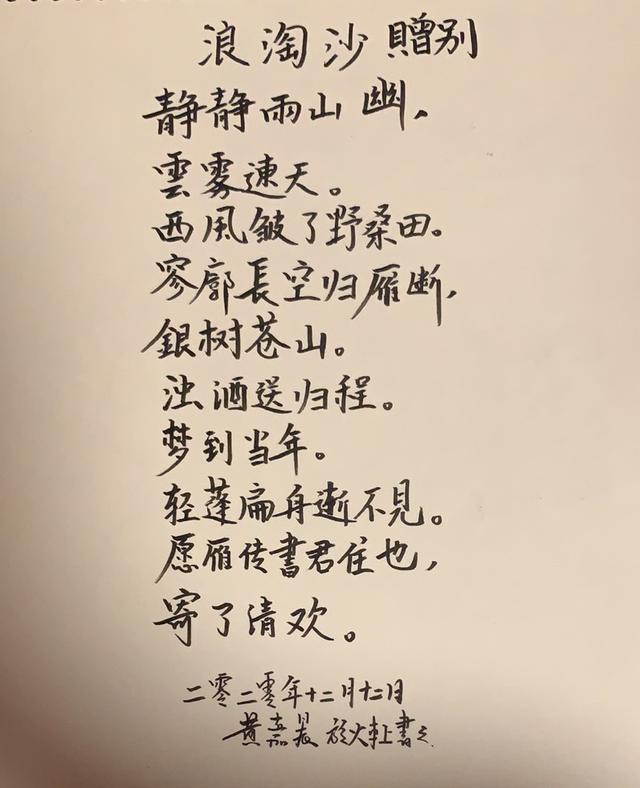 浪淘沙 贈别
静静雨山幽，
雲雾連天。
西風皱了野桑田。
寥廓長空归雁断，
銀树苍山。
浊酒送归程。
梦到当年。
轻蓬扁舟逝不見。
愿雁传書君住也，
寄了清欢。
二零二零年十二月十二日
黄嘉晨 於火車上書之